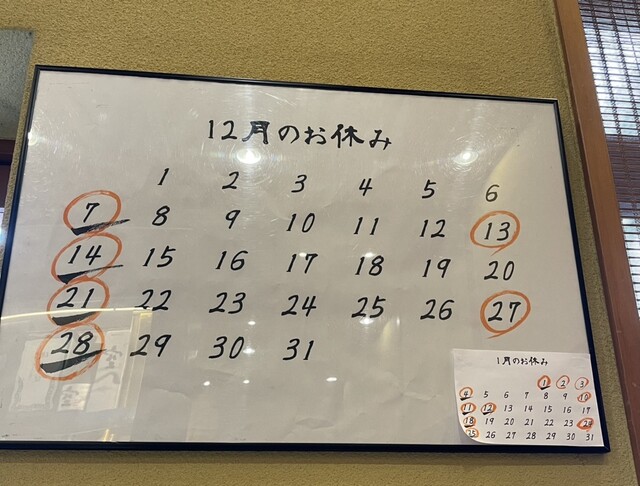 12月のお休み
1 2 3 4 5 6
7 8 9 10 11 12 13
14 15 16 17 18 19 20
21 22 23 24 25 26 27
28 29 30 31
1月のお休み
1 2 3
4 5 6 7 8 9 10
11 12 13 14 15 16 17
18 19 20 21 22 23 24
25 26 27 28 29 30 31